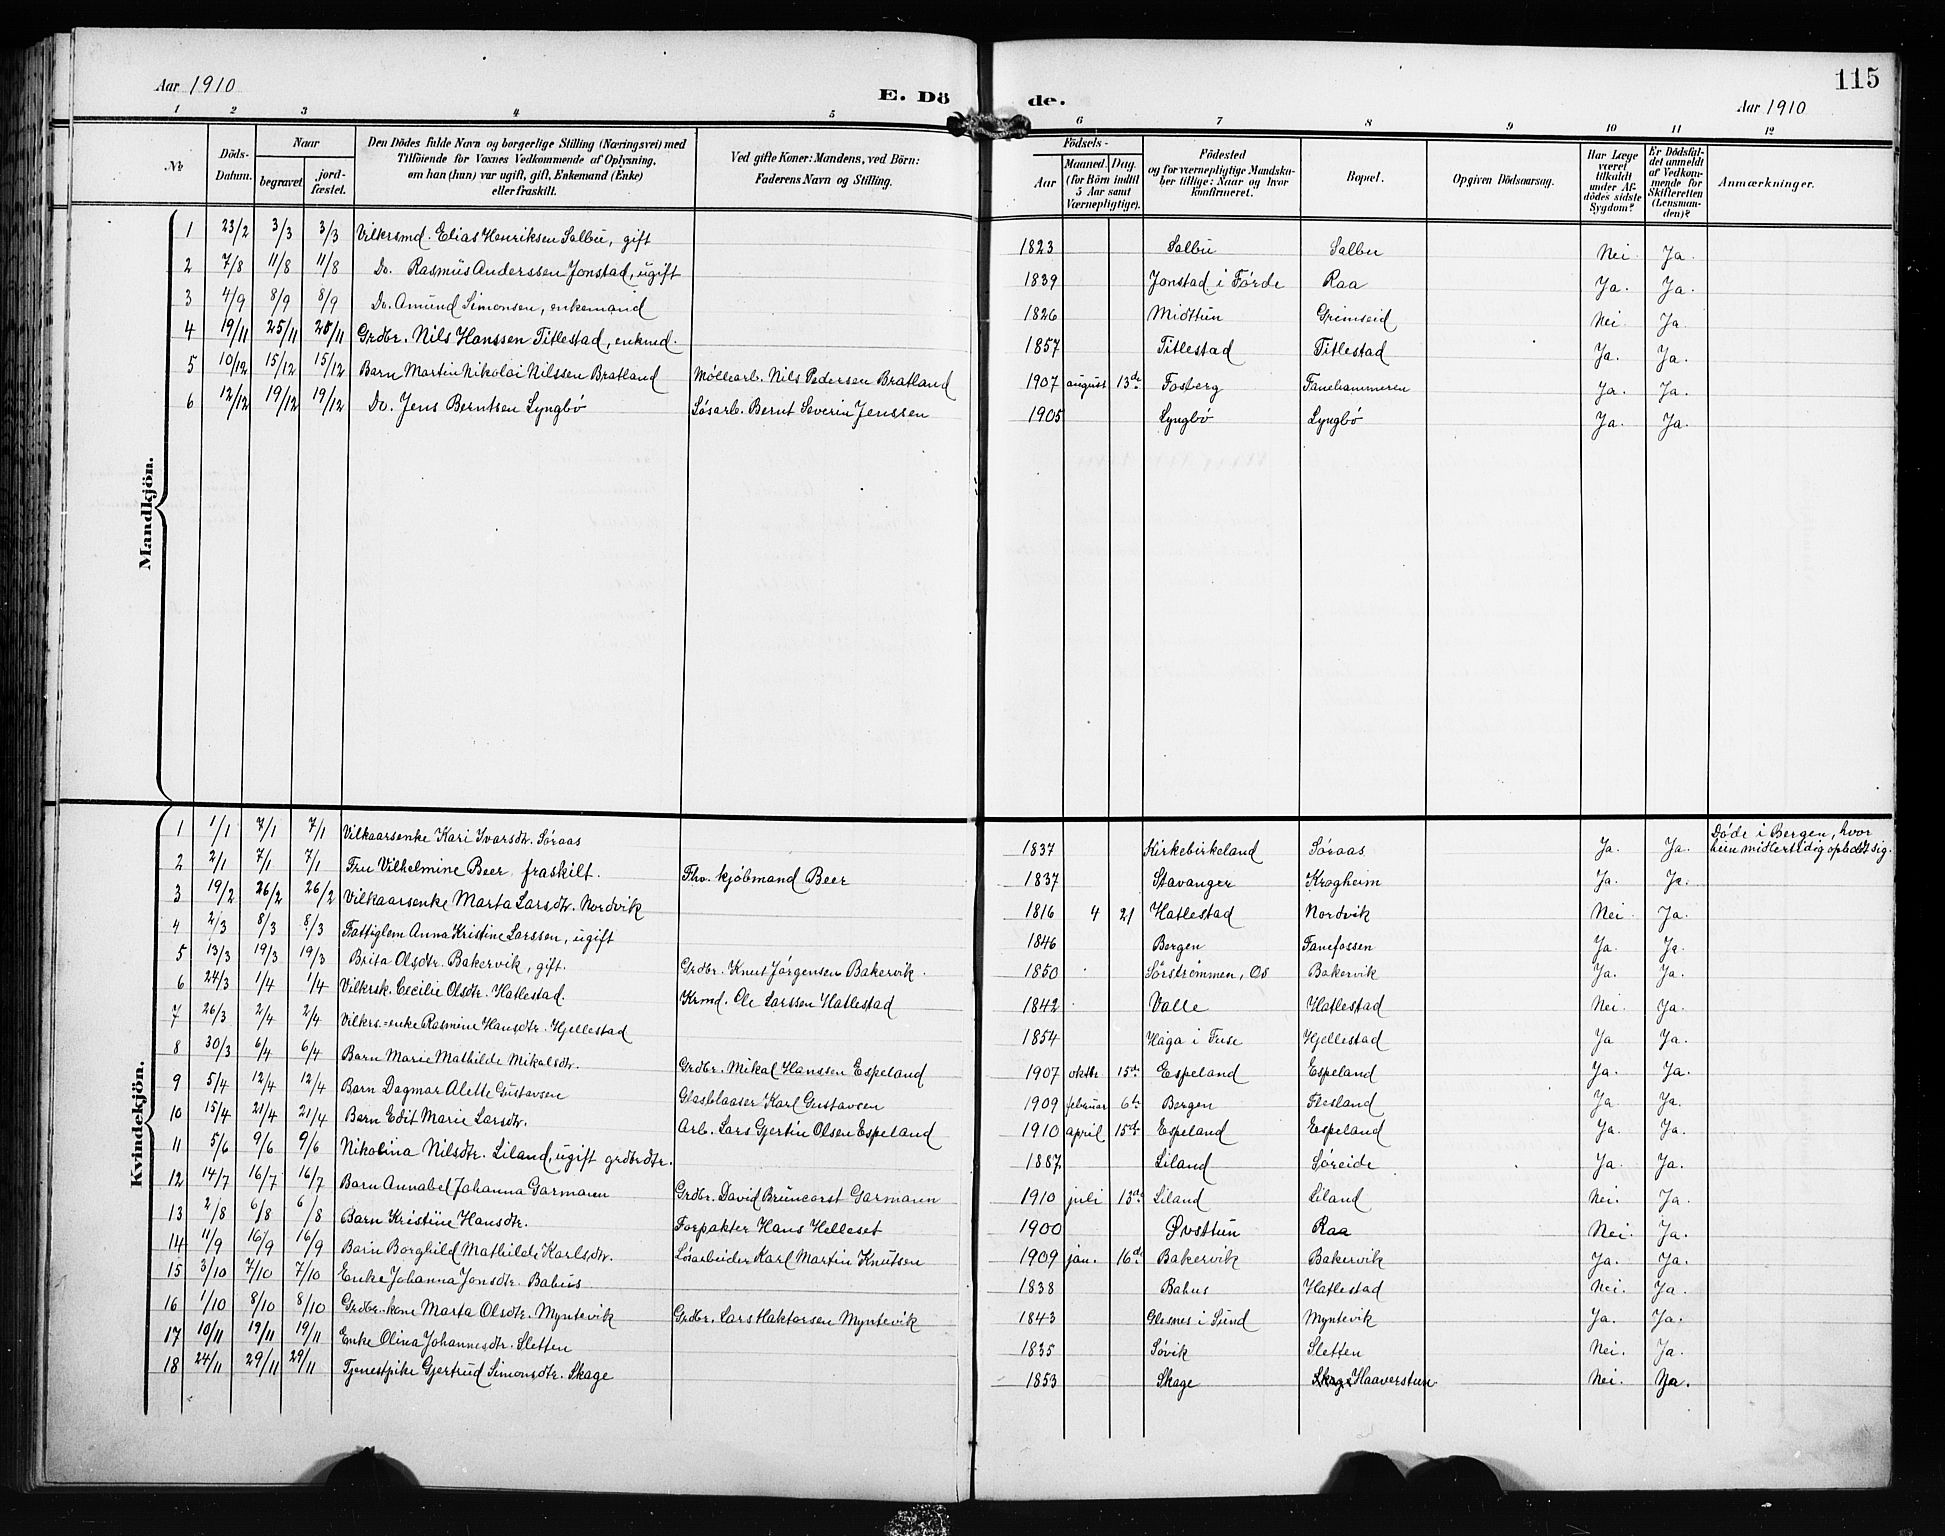 Aar 1910
E. Dö
de.
Aar 1910
115
1 2 3 4 5 6 7 8 9 10 11 12
No
Döds-Datum.
Naar
begravet.
jord-fæstet.
Den Dödes fulde Navn og borgerlige Stilling (Næringsvei) med
Tilföiende for Voxnes Vedkommende af Oplysning,
om han (hun) var ugift, gift, Enkemand (Enke)
eller fraskilt.
Ved gifte Koner: Mandens, ved Börn:
Faderens Navn og Stilling.
Födsels-
Aar
Maaned. Dag.
(for Börn indtil
5 Aar samt
Værnepligtige).
Födested
og for værnepligtige Mandska-
ber tillige: Naar og hvor
konfirmeret.
Bopæl.
Opgiven Dödsaarsag.
Har Læge
været
tilkaldt
under Af-
dödes sidste
Sygdom?
Er Dödsfal-
det anmeldt
af Vedkom-
mende for
Skifteretten
(Lensman-
den)?
Anmærkninger.
Mandkjön.
1 23/2 3/3 3/3 Vilkrsmd. Elias Henriksen Salbu, gift 1823 Salbu Salbu Nei. Ja.
2 7/8 11/8 11/8 Do. Rasmus Anderssen Jonstad, ugift 1839 Jonstad i Førde Raa Ja. Ja.
3 4/9 8/9 8/9 Do. Amund Simonsen, enkemand 1826 Midttun Grimseid Nei. Ja.
4 19/11 25/11 25/11 Grdbr. Nils Hanssen Titlestad, enkmd. 1857 Titlestad Titlestad Ja. Ja.
5 10/12 15/12 15/12 Barn Martin Nikolai Nilssen Bratland Møllearb. Nils Pedersen Bratland 1907 august 13de Fosberg Fanehammeren Ja. Ja.
6 12/12 19/12 19/12 Do. Jens Berntsen Lyngbø Løsarb. Bernt Severin Jenssen 1905 Lyngbø Lyngbø Ja. Ja.
Kvindekjön.
1 1/1 7/1 7/1 Vilkaarsenke Kari Ivarsdtr. Søraas 1837 Kirkebirkeland Søraas Ja. Ja. Døde i Bergen, hvor
hun midlertidig opholdt sig.
2 2/1 7/1 7/1 Fru Vilhelmine Beer, fraskilt. Fhv. kjøbmand Beer 1837 Stavanger Krogheim Ja. Ja.
3 19/2 26/2 26/2 Vilkaarsenke Marta Larsdtr. Nordvik 1816 4 21 Hatlestad Nordvik Nei. Ja.
4 2/3 8/3 8/3 Fattiglem Anna Kristine Larssen, ugift 1846 Bergen Fanefossen Ja. Ja.
5 13/3 19/3 19/3 Brita Olsdtr. Bakervik, gift. Grdbr. Knut Jørgensen Bakervik. 1850 Sørstrømmen, Os Bakervik Ja. Ja.
6 24/3 1/4 1/4 Vilkrsk. Cecilie Olsdtr. Hatlestad. Krmd. Ole Larssen Hatlestad 1842 Valle Hatlestad Nei. Ja.
7 26/3 2/4 2/4 Vilkrs.-enke Rasmine Hansdtr. Hjellestad 1854 Håga i Fuse Hjellestad Ja Ja.
8 30/3 6/4 6/4 Barn Marie Mathilde Mikalsdtr. Grdbr. Mikal Hanssen Espeland 1907 oktbr 15de Espeland Espeland Ja. Ja.
9 5/4 12/4 12/4 Barn Dagmar Alette Gustavsen Glasblaaser Karl Gustavsen 1909 februar 6te Bergen Flesland Ja Ja.
10 15/4 21/4 21/4 Barn Edit Marie Larsdtr. Arb. Lars Gjertin Olsen Espeland 1910 april 15de Espeland Espeland Ja. Ja.
11 5/6 9/6 9/6 Nikolina Nilsdtr. Liland, ugift grdbrdtr. 1887 Liland Søreide Ja. Ja.
12 14/7 16/7 16/7 Barn Annabel Johanna Garmann Grdbr. David Bruncorst Garmann 1910 juli 13de Liland Liland Nei. Ja.
13 2/8 6/8 6/8 Barn Kristine Hansdtr. Forpakter Hans Helleset 1900 Øvsttun Raa Nei. Ja.
14 11/9 16/9 16/9 Barn Borghild Mathilde Karlsdtr. Løsarbeider Karl Martin Knutsen 1909 jan. 16de Bakervik Bakervik Ja. Ja.
15 3/10 7/10 7/10 Enke Johanna Jonsdtr. Bahus 1838 Bahus Hatlestad Nei. Ja.
16 1/10 8/10 8/10 Grdbr.-kone Marta Olsdtr. Myntevik Grdbr. Lars Haktorsen Myntevik 1843 Glesnes i Sund Myntevik Ja. Ja.
17 10/11 19/11 19/11 Enke Olina Johannesdtr. Sletten 1835 Søvik Sletten Nei. Ja.
18 24/11 29/11 29/11 Tjenestpike Gjertrud Simonsdtr. Skage 1853 Skage Skage Haaverstun. Nei. Ja.